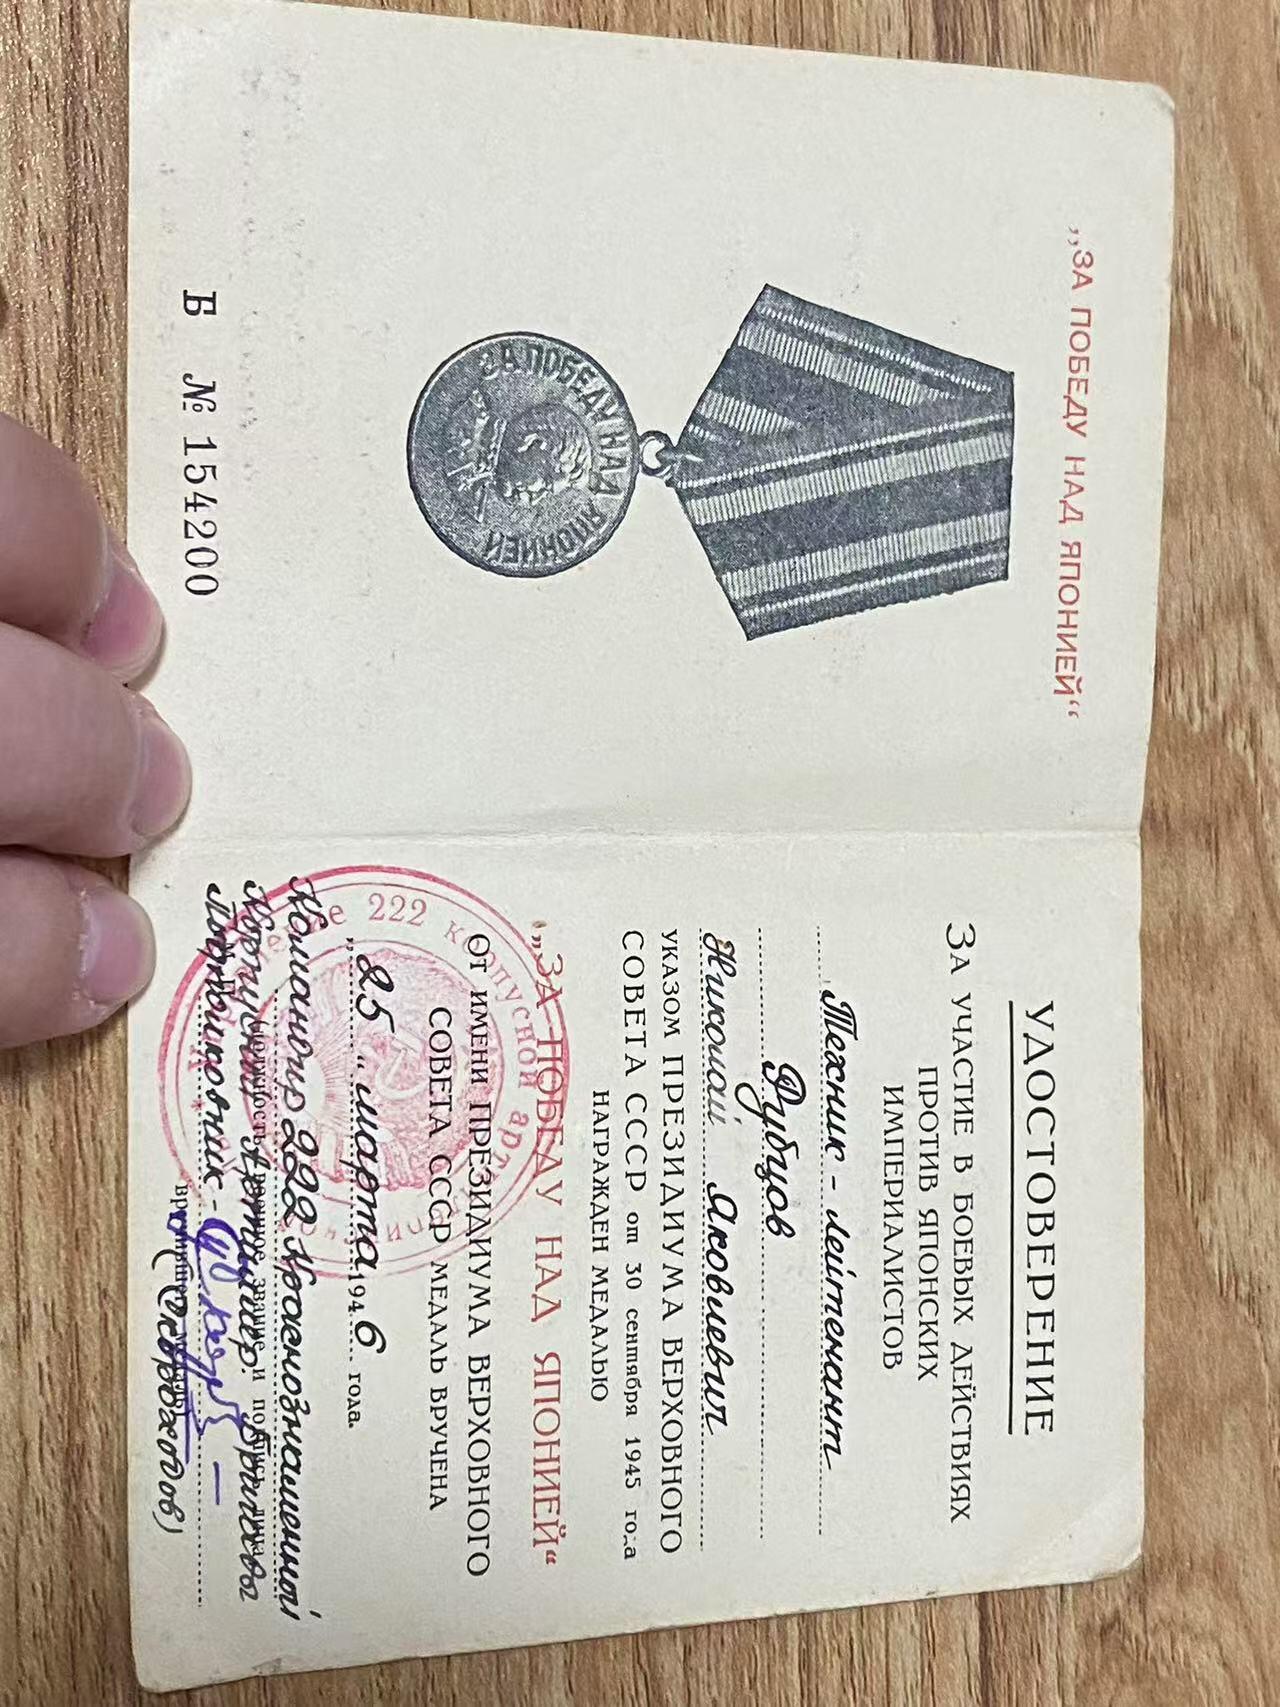 „ЗА ПОБЕДУ НАД ЯПОНИЕЙ“
ЗА ПОБЕДУ НАД ЯПОНИЕЙ
Б № 154200
УДОСТОВЕРЕНИЕ
ЗА УЧАСТИЕ В БОЕВЫХ ДЕЙСТВИЯХ
ПРОТИВ ЯПОНСКИХ
ИМПЕРИАЛИСТОВ
Техник-лейтенант
Рубцов
Николай Яковлевич
УКАЗОМ ПРЕЗИДИУМА ВЕРХОВНОГО
СОВЕТА СССР от 30 сентября 1945 года
НАГРАЖДЕН МЕДАЛЬЮ
„ЗА ПОБЕДУ НАД ЯПОНИЕЙ“
От ИМЕНИ ПРЕЗИДИУМА ВЕРХОВНОГО
СОВЕТА СССР МЕДАЛЬ ВРУЧЕНА
„25“ марта 1946 года.
Командир 222 Краснознаменной
Корпусной Артиллер. Бригады
Подполковник -
(Скороходов)
222 корпусной